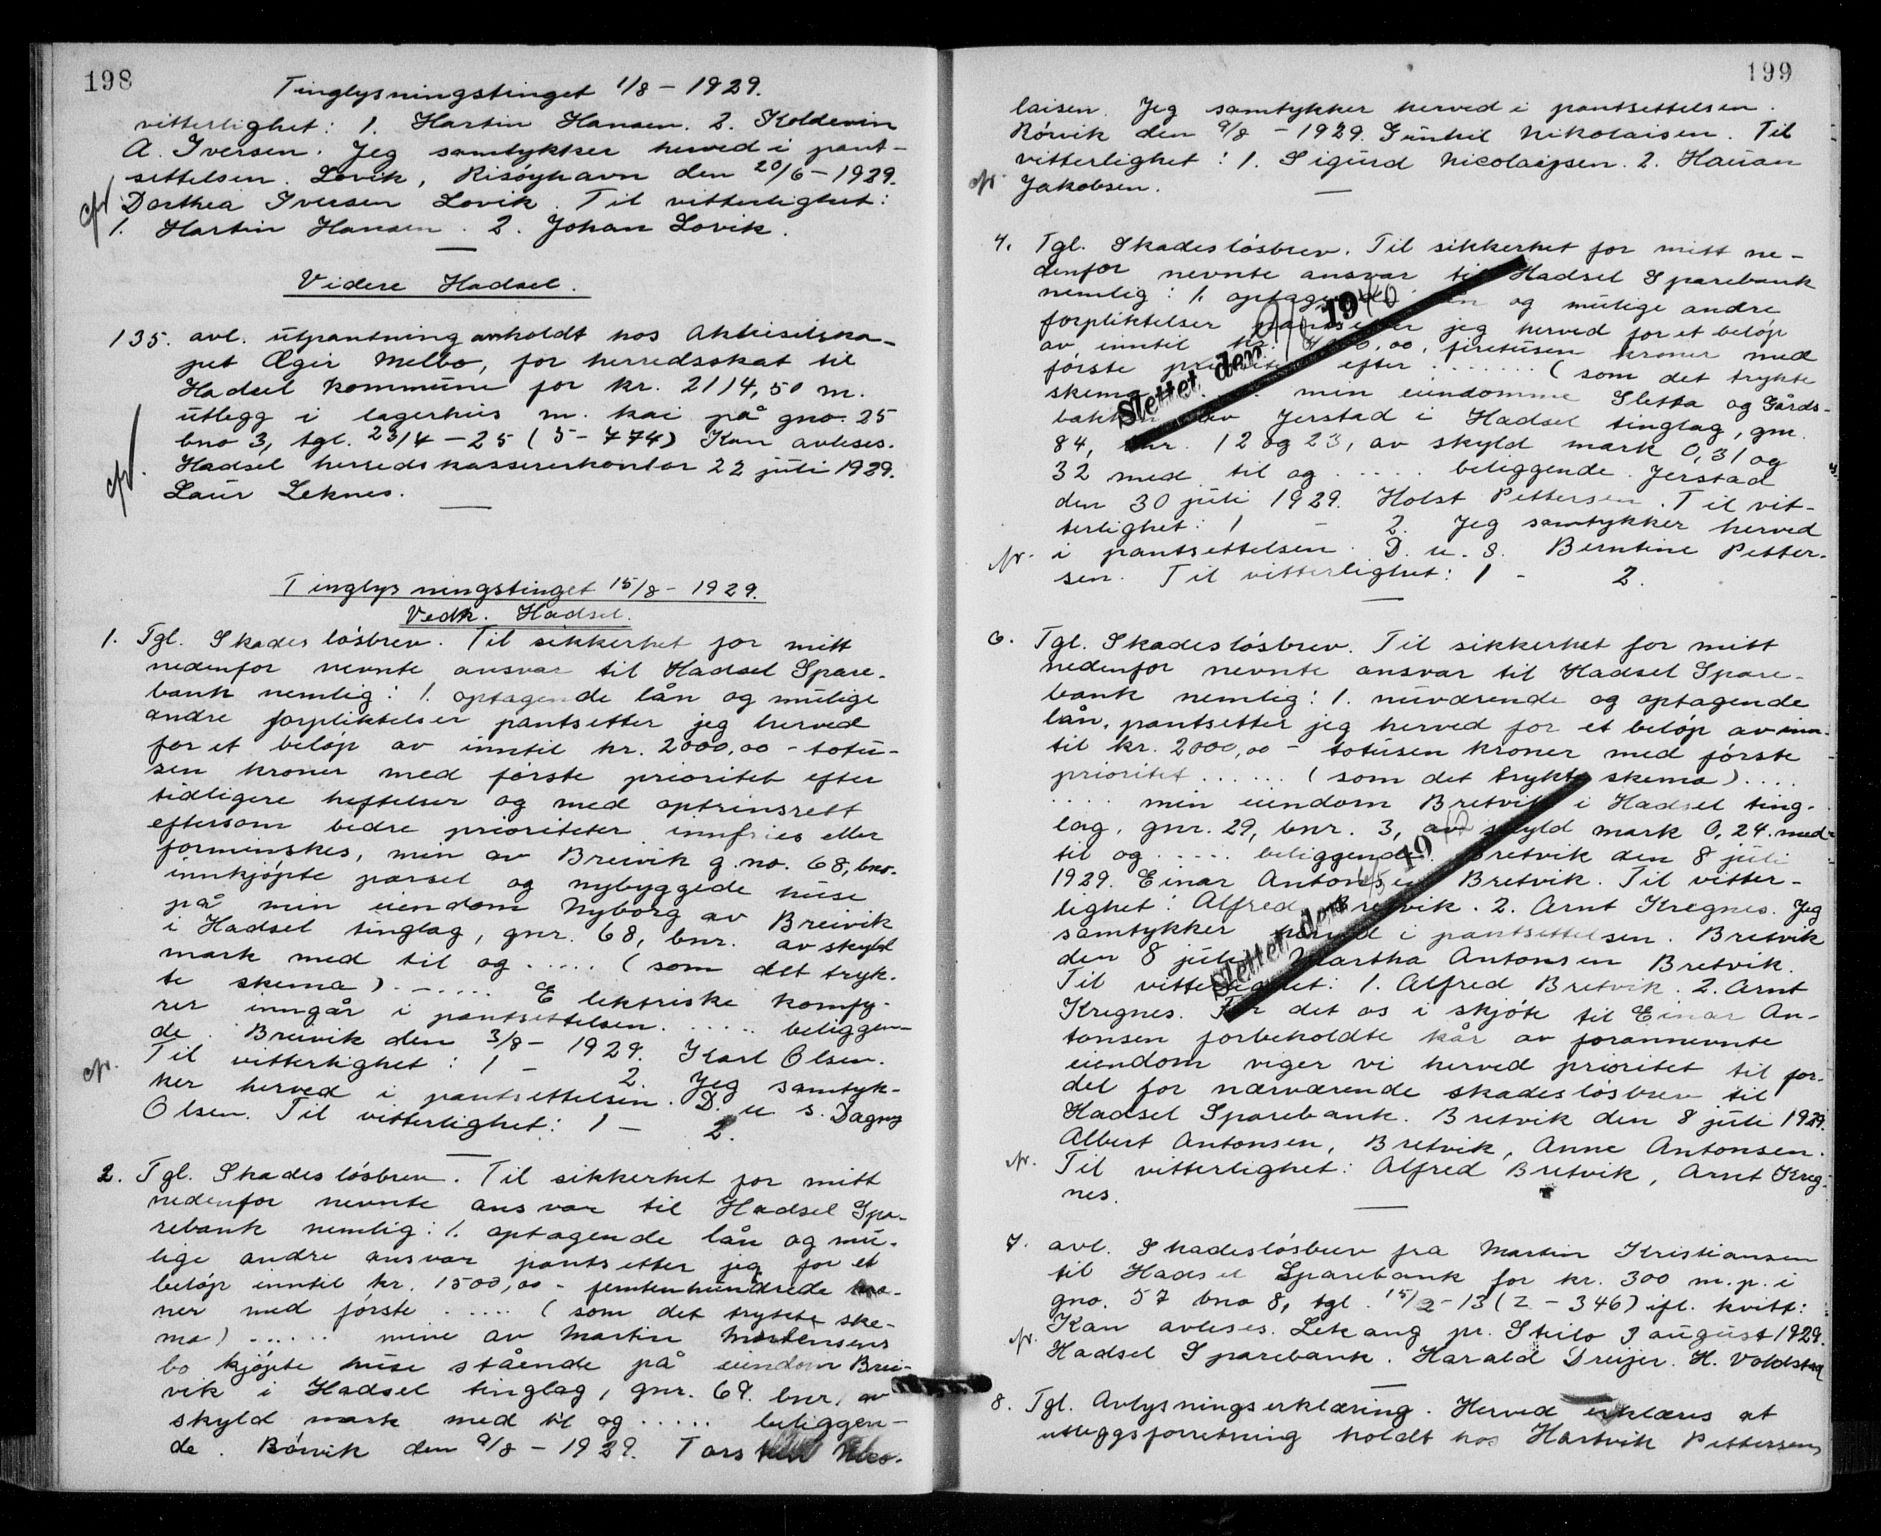 198
Tinglysningstinget 1/8 - 1929.
vitterlighet: 1. Hartin Hansen. 2. Koldevin
A. Iversen. Jeg samtykker herved i pant-
settelsen. Lovik, Risøyhavn den 20/6 - 1929.
Dorthea Iversen Lovik. Til vitterlighet:
1. Hartin Hansen. 2. Johan Lovik.
Videre Hadsel.
135. avl. utpantning avholdt hos Aktieselska-
pet Ægir Melbo, for herredsskat til
Hadsel kommune for kr. 2114,50 m.
utlegg i lagerhus m. kai på gno. 25
bno 3, tgl. 23/4 - 25 (5 - 774) Kan avleses.
Hadsel herredskassererkontor 22 juli 1929.
Laur Leknes.
Tinglysningstinget 15/8 - 1929.
Vedk. Hadsel.
1. Tgl. Skadesløsbrev. Til sikkerhet for mitt
nedenfor nevnte ansvar til Hadsel Spare-
bank nemlig: 1. optagende lån og mulige
andre forpliktelser pantsetter jeg herved
for et beløp av inntil kr. 2000,00 - totu-
sen kroner med første prioritet efter
tidligere heftelser og med optrinsrett
eftersom bedre prioriteter innfries eller
forminskes, min av Breivik g.no. 68, bno.
innkjøpte parsel og nybyggede huse
på min eiendom Nyborg av Breivik
i Hadsel tinglag, gnr. 68, bnr. av skyld
mark med til og ..... (som det tryk-
te skema) ...... Elektriske komfy-
rer inngår i pantsettelsen. ..... beliggen-
de. Breivik den 3/8 - 1929. Karl Olsen.
Til vitterlighet: 1 - 2. Jeg samtyk-
ker herved i pantsettelsen. D. u. s. Dagny
Olsen. Til vitterlighet: 1 - 2.
2. Tgl. Skadesløsbrev. Til sikkerhet for mitt
nedenfor nevnte ansvar til Hadsel Spa-
rebank nemlig: 1. optagende lån og mu-
lige andre ansvar pantsetter jeg for et
beløp inntil kr. 1500,00 - femtenhundrede kro-
ner med første ..... (som det trykte ske-
ma) ...... mine av Martin Mortensens
bo kjøpte huse stående på eiendom Brei-
vik i Hadsel tinglag, gnr. 69. bnr. av
skyld mark med til og ..... beliggen-
de. Rørvik den 9/8 - 1929. Torstein Niko-
199
laisen. Jeg samtykker herved i pantsettelsen.
Rørvik den 9/8 - 1929. Gunhil Nikolaisen. Til
vitterlighet: 1. Sigurd Nicolaysen. 2. Hauan
Jakobsen.
4. Tgl. Skadesløsbrev. Til sikkerhet for mitt ne-
denfor nevnte ansvar til Hadsel Sparebank
nemlig: 1. optagende lån og mulige andre
forpliktelser pantsetter jeg herved for et beløp
av inntil kr. 4000,00, firetusen kroner med
første prioritet efter ....... (som det trykte
skema) min eiendomme Sletta og Gårds-
bakken av Jerstad i Hadsel tinglag, gnr.
84, bnr. 12 og 23, av skyld mark 0,31 og
32 med til og ..... beliggende. Jerstad
den 30 juli 1929. Holst Pettersen. Til vit-
terlighet: 1 - 2. Jeg samtykker herved
i pantsettelsen. D. u. s. Berntine Petter-
sen. Til vitterlighet: 1 - 2.
Slettet den 19
6. Tgl. Skadesløsbrev. Til sikkerhet for mitt
nedenfor nevnte ansvar til Hadsel Spare-
bank nemlig: 1. nuværende og optagende
lån, pantsetter jeg herved for et beløp av inn-
til kr. 2000,00 - totusen kroner med første
prioritet ...... (som det trykte skema) ....
.... min eiendom Bretvik i Hadsel ting-
lag, gnr. 29, bnr. 3, av skyld mark 0,24. med
til og ..... beliggende. Bretvik den 8 juli
1929. Einar Antonsen Bretvik. Til vitter-
lighet: Alfred Bretvik. 2. Arnt Kregnes. Jeg
samtykker herved i pantsettelsen. Bretvik
den 8 juli. Martha Antonsen Bretvik.
Til vitterlighet: 1. Alfred Bretvik. 2. Arnt
Kregnes. For det os i skjøte til Einar An-
tonsen forbeholdte kår av forannevnte
eiendom viger vi herved prioritet til for-
del for nærværende skadesløsbrev til
Hadsel Sparebank. Bretvik den 8 juli 1929.
Albert Antonsen, Bretvik, Anne Antonsen.
Til vitterlighet: Alfred Bretvik, Arnt Kreg-
nes.
Slettet den 19
7. avl. Skadesløsbrev fra Martin Kristiansen
til Hadsel Sparebank for kr. 300 m. p. i
gno. 57 bno 8, tgl. 15/2 - 13 (2 - 346) ifl. kvitt:
Kan avleses. Lekang pr. Stilo 3 august 1929.
Hadsel Sparebank. Harald Dreyer. H. Voldstad
8. Tgl. Avlysningserklæring. Herved erklæres at
utleggsforretning holdt hos Hartvik Pettersens